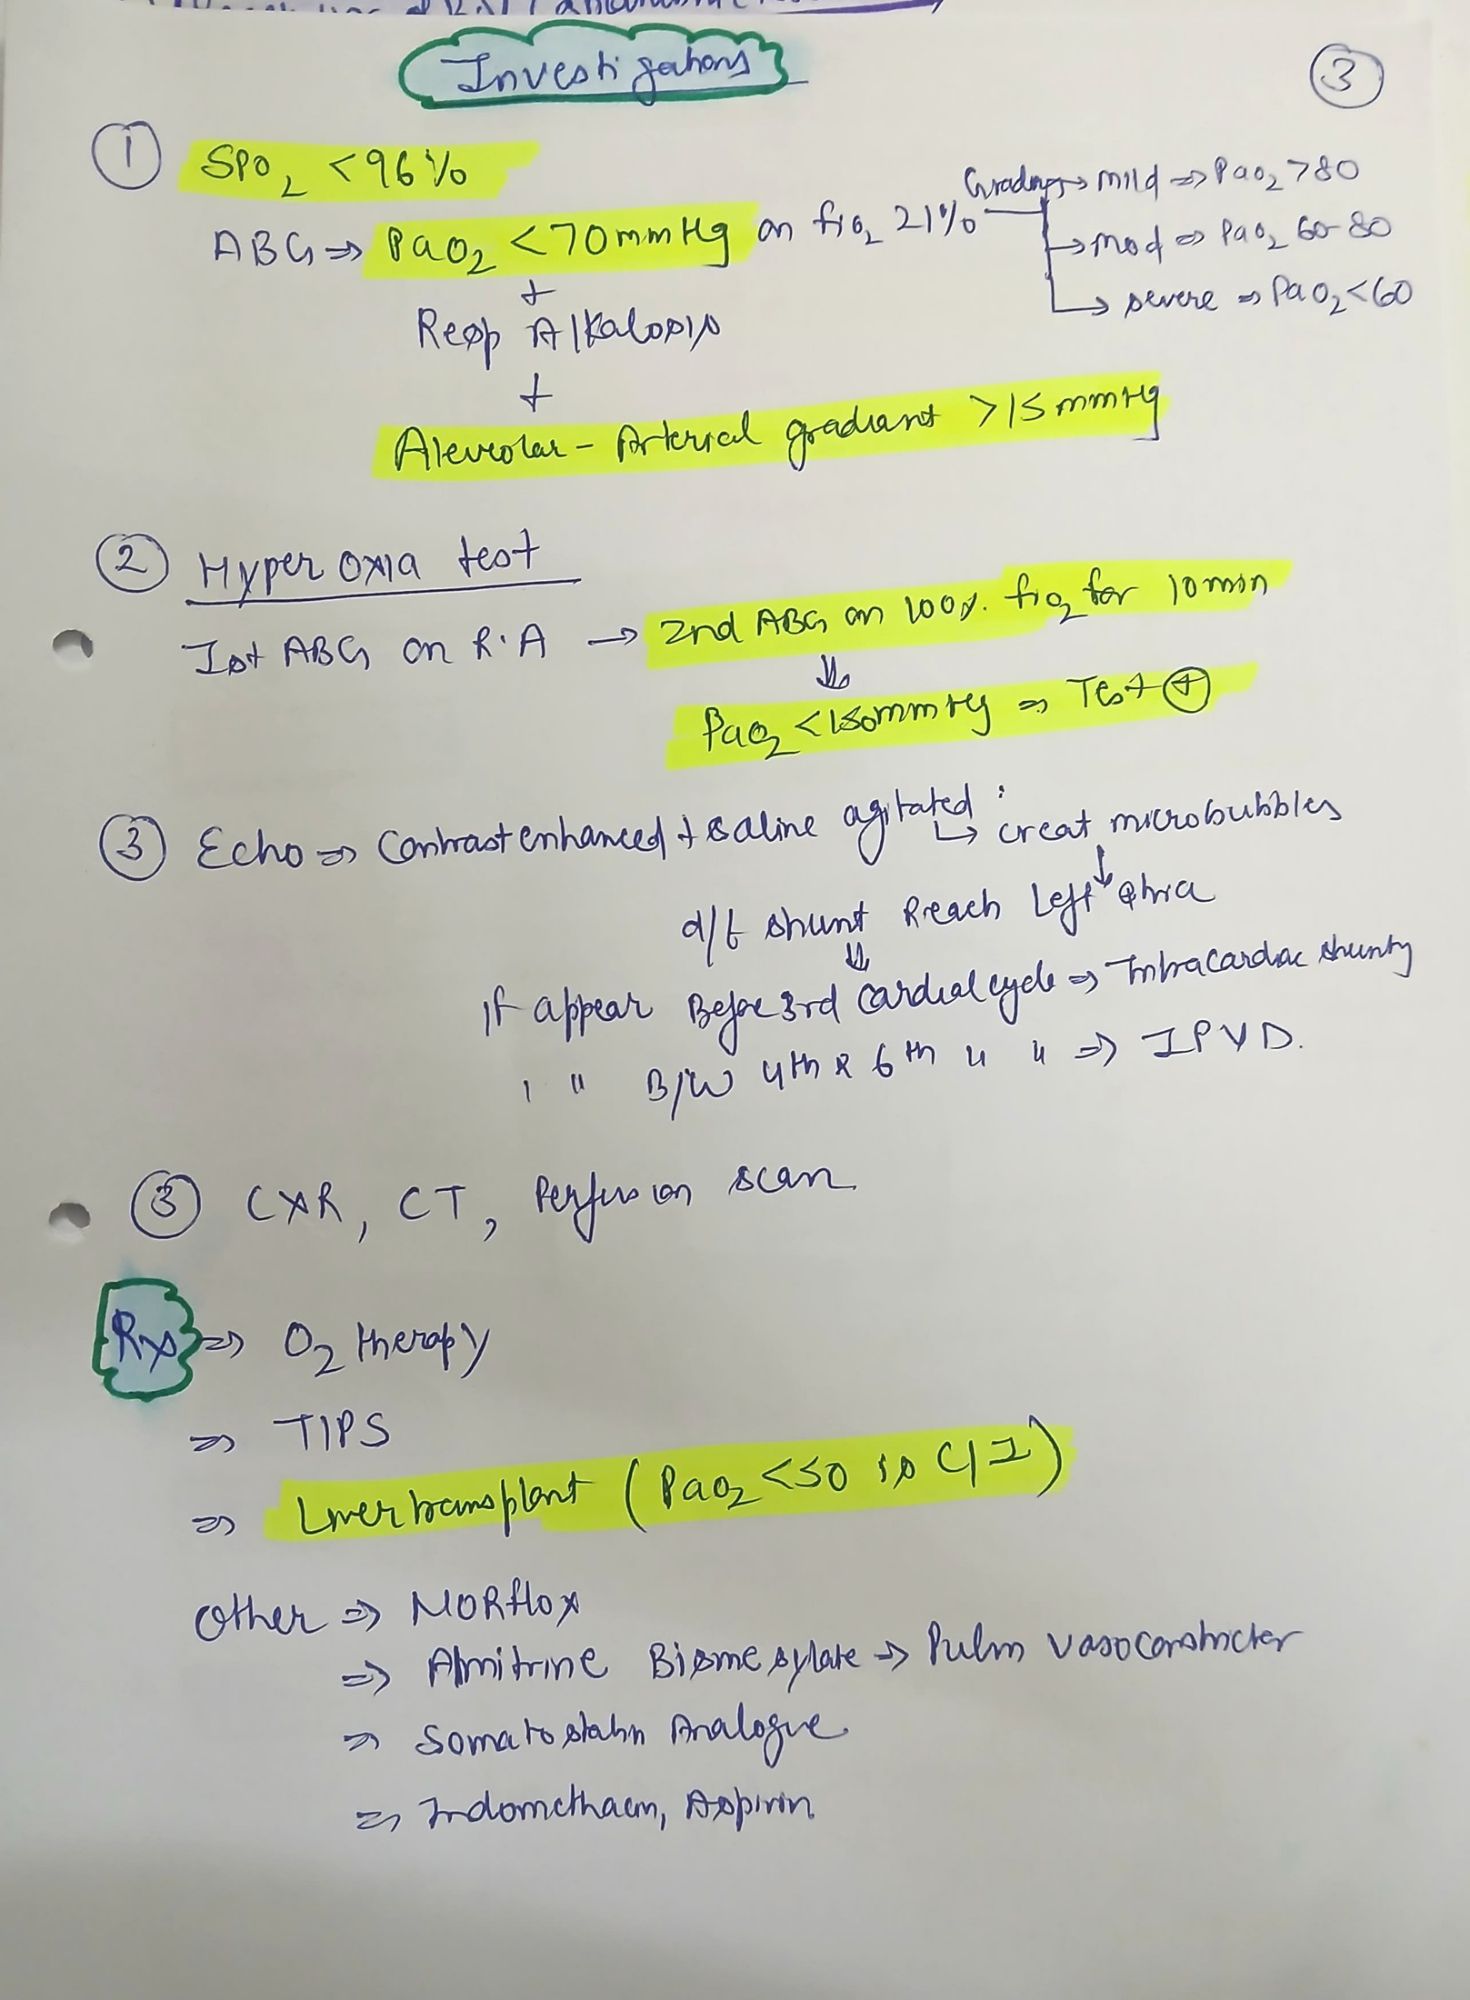 Investigations
3
1 SPO2 <96%
Gradings → mild ⇒ PaO2 >80
ABG ⇒ PaO2 <70mmHg on fio2 21% → mod ⇒ PaO2 60-80
→ severe ⇒ PaO2 <60
+
Resp Alkalosis
+
Aleveolar - Arterial gradiant >15mmHg
2 Hyper oxia test
Ist ABG on R.A → 2nd ABG on 100%. fio2 for 10min
⇓
PaO2 <150mmHg ⇒ Test ⊕
3 Echo ⇒ Contrast enhanced + saline agitated :
↳ creat microbubbles
↓
d/t shunt Reach Left atria
⇓
If appear Before 3rd Cardial cycle ⇒ Intracardiac shunty
" " B/W 4th & 6th " " ⇒ IPVD.
3 CXR, CT, Perfusion scan
Rx ⇒ O2 therapy
⇒ TIPS
⇒ Liver transplant (PaO2 <50 is C/I)
Other ⇒ NORflox
⇒ Almitrine Bismesylate ⇒ Pulm vasoconstricter
⇒ Somatostatin Analogue
⇒ Indomethacin, Aspirin